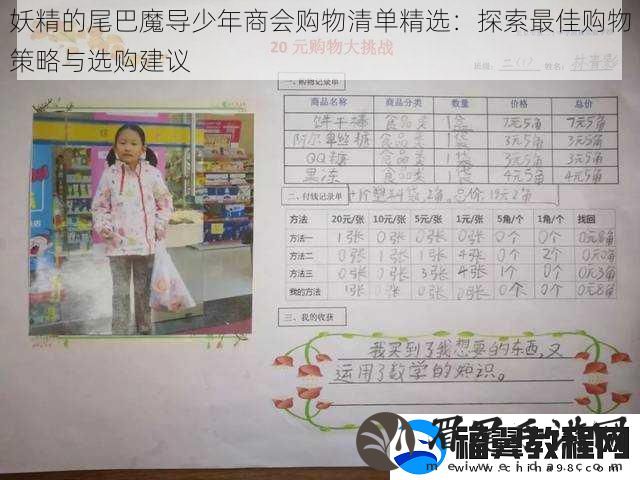 妖精的尾巴魔导少年商会购物清单精选：探索最佳购物
策略与选购建议
20 元购物大挑战
班级：二(1) 姓名：
一、购物记录单
商品名称 商品分类 数量 价格 总价
饼干棒 食品类 1袋 7元5角 7元5角
阿尔卑丝糖 食品类 1袋 3元5角 3元5角
QQ糖 食品类 1袋
果冻 食品类 1袋 4元5角 4元5角
二、付钱记录单 +1个塑料袋2角。总价19元2角
方法 20元/张 10元/张 5元/张 1元/张 5角/个 1角/个 找回
方法一 1张 0张 0张 0张 0个 0个 0元8角
方法二 0张 1张 1张 4张 0个 2个 0元0角
方法三 0张 0张 3张 4张 1个 0个 0元3角
我的方法 1张 0张 0张 0张 0个 0个 0元8角
三、我的收获
我买到了我想要的东西,又
运用了数学的知识。
福翼教程网
meiweidasa.com
www.china98s.com